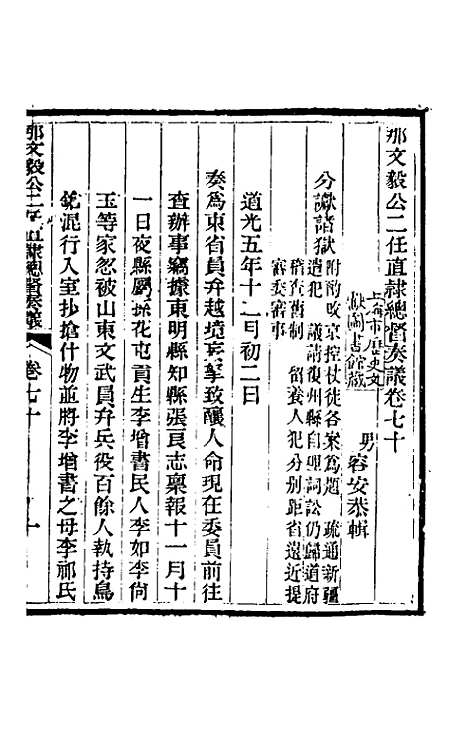 那文毅公二任直隸總督奏議卷七十
上海市歷史文
獻圖書館藏
男容安恭輯
分讞諸獄
附酌改京控杖徒各案爲題 疏通新疆
遣犯 議請復州縣自理詞訟仍歸道府
稽查舊制 留養人犯分別距省遠近提
審委審事
道光五年十二月初二日
奏爲東省員弁越境妄拏致釀人命現在委員前往
查辦事竊據東明縣知縣張良志稟報十一月十
一日夜縣屬花屯貢生李增書民人李如李尙
玉等家忽被山東文武員弁兵役百餘人執持鳥
鎗混行入室抄搶什物並將李增書之母李祁氏
那文毅公二任直隸總督奏議 卷七十